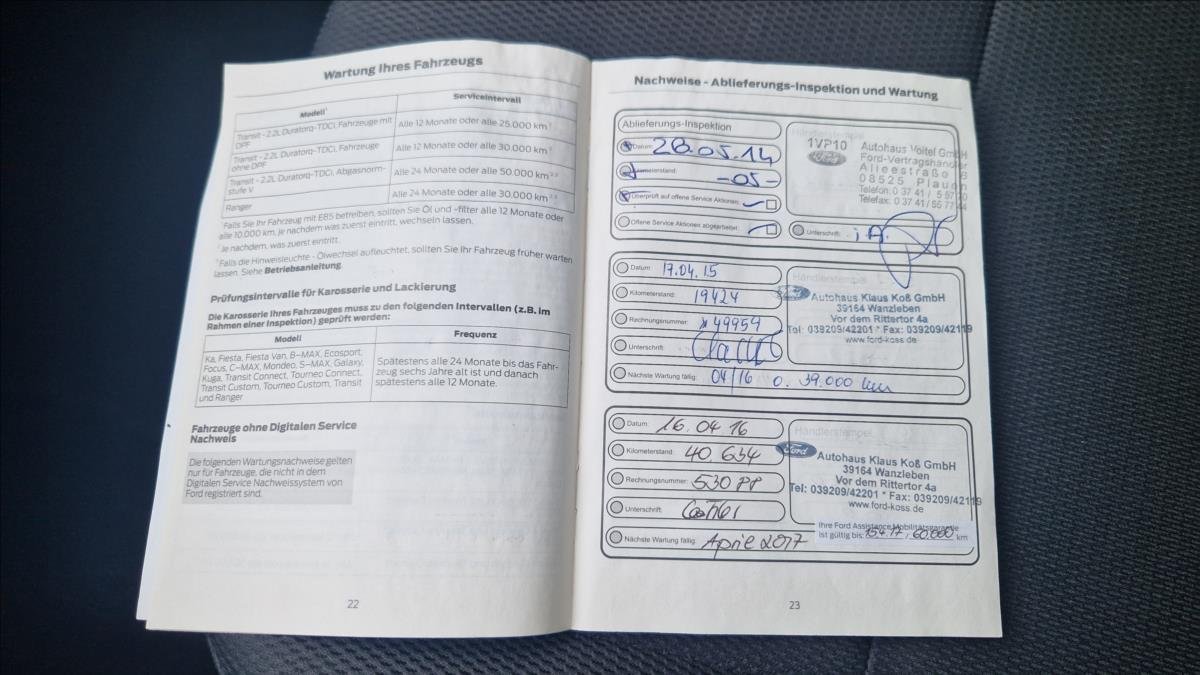 Wartung Ihres Fahrzeugs
Modell¹
Serviceintervall
Transit - 2.2L Duratorq-TDCi, Fahrzeuge mit
DPF
Alle 12 Monate oder alle 25.000 km
Transit - 2.2L Duratorq-TDCi, Fahrzeuge
ohne DPF
Alle 12 Monate oder alle 30.000 km
Transit - 2.2L Duratorq-TDCi, Abgasnorm-
stufe V
Alle 24 Monate oder alle 50.000 km
Ranger
Alle 24 Monate oder alle 30.000 km
Falls Sie Ihr Fahrzeug mit E85 betreiben, sollten Sie Öl und -filter alle 12 Monate oder
alle 10.000 km, je nachdem was zuerst eintritt, wechseln lassen.
Je nachdem, was zuerst eintritt.
Falls die Hinweisleuchte - Ölwechsel aufleuchtet, sollten Sie Ihr Fahrzeug früher warten
lassen. Siehe Betriebsanleitung.
Prüfungsintervalle für Karosserie und Lackierung
Die Karosserie Ihres Fahrzeuges muss zu den folgenden Intervallen (z.B. im
Rahmen einer Inspektion) geprüft werden:
Modell
Frequenz
Ka, Fiesta, Fiesta Van, B-MAX, Ecosport,
Focus, C-MAX, Mondeo, S-MAX, Galaxy,
Kuga, Transit Connect, Tourneo Connect,
Transit Custom, Tourneo Custom, Transit
und Ranger
Spätestens alle 24 Monate bis das Fahr-
zeug sechs Jahre alt ist und danach
spätestens alle 12 Monate.
Fahrzeuge ohne Digitalen Service
Nachweis
Die folgenden Wartungsnachweise gelten
nur für Fahrzeuge, die nicht in dem
Digitalen Service Nachweissystem von
Ford registriert sind.
22
Nachweise - Ablieferungs-Inspektion und Wartung
Ablieferungs-Inspektion
Datum: 28.05.14
Kilometerstand: -05-
Überprüft auf offene Service Aktionen:
Offene Service Aktionen abgearbeitet:
Händlerstempel
1VP10
Ford
Autohaus Voitel GmbH
Ford-Vertragshändler
Alleestraße
08525 Plauen
Telefon: 0 37 41 /
Telefax: 0 37 41 /
Unterschrift: i.A.
Datum: 17.04.15
Kilometerstand: 19424
Rechnungsnummer: 49954
Unterschrift:
Nächste Wartung fällig: 04/16 o. 39.000 km
Händlerstempel
Ford
Autohaus Klaus Koß GmbH
39164 Wanzleben
Vor dem Rittertor 4a
Tel: 039209/42201 * Fax: 039209/42119
www.ford-koss.de
Datum: 16.04.16
Kilometerstand: 40 634
Rechnungsnummer:
Unterschrift:
Nächste Wartung fällig: April 2017
Händlerstempel
Ford
Autohaus Klaus Koß GmbH
39164 Wanzleben
Vor dem Rittertor 4a
Tel: 039209/42201 * Fax: 039209/42119
www.ford-koss.de
Ihre Ford Assistance Mobilitätsgarantie
ist gültig bis: 15.4.17, 60.000 km
23